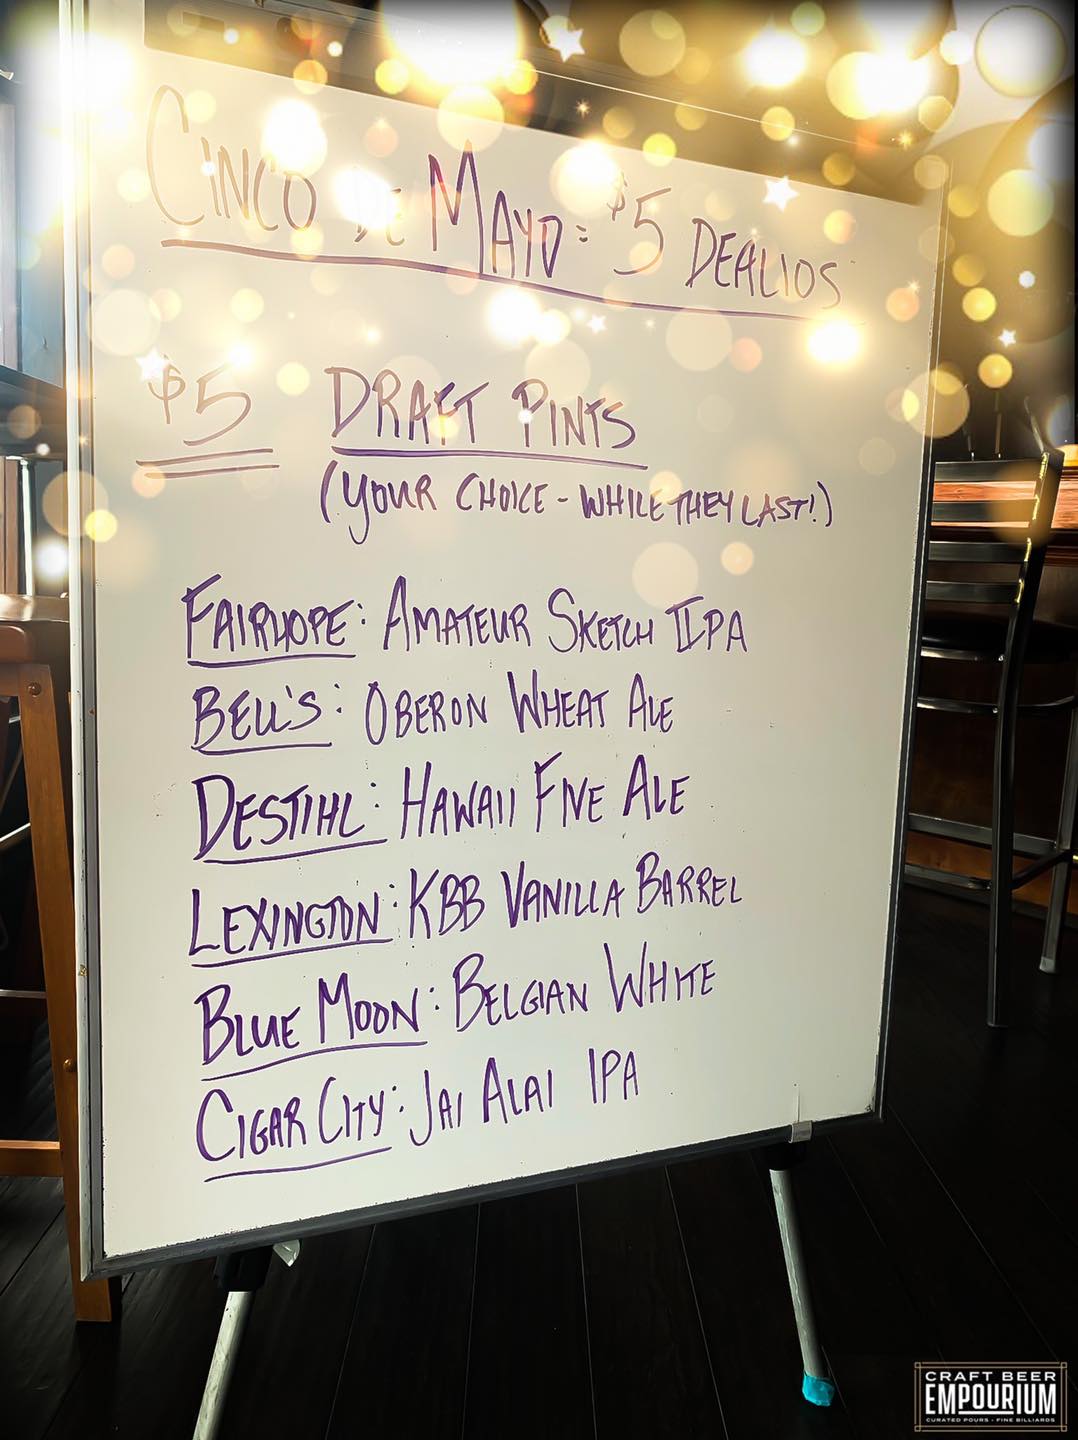 CINCO DE MAYO: $5 DEALIOS
$5 DRAFT PINTS
(YOUR CHOICE - WHILE THEY LAST!)
FAIRHOPE: AMATEUR SKETCH IIPA
BELL'S: OBERON WHEAT ALE
DESTIHL: HAWAII FIVE ALE
LEXINGTON: KBB VANILLA BARREL
BLUE MOON: BELGIAN WHITE
CIGAR CITY: JAI ALAI IPA
CRAFT BEER
EMPOURIUM
CURATED POURS - FINE BILLIARDS